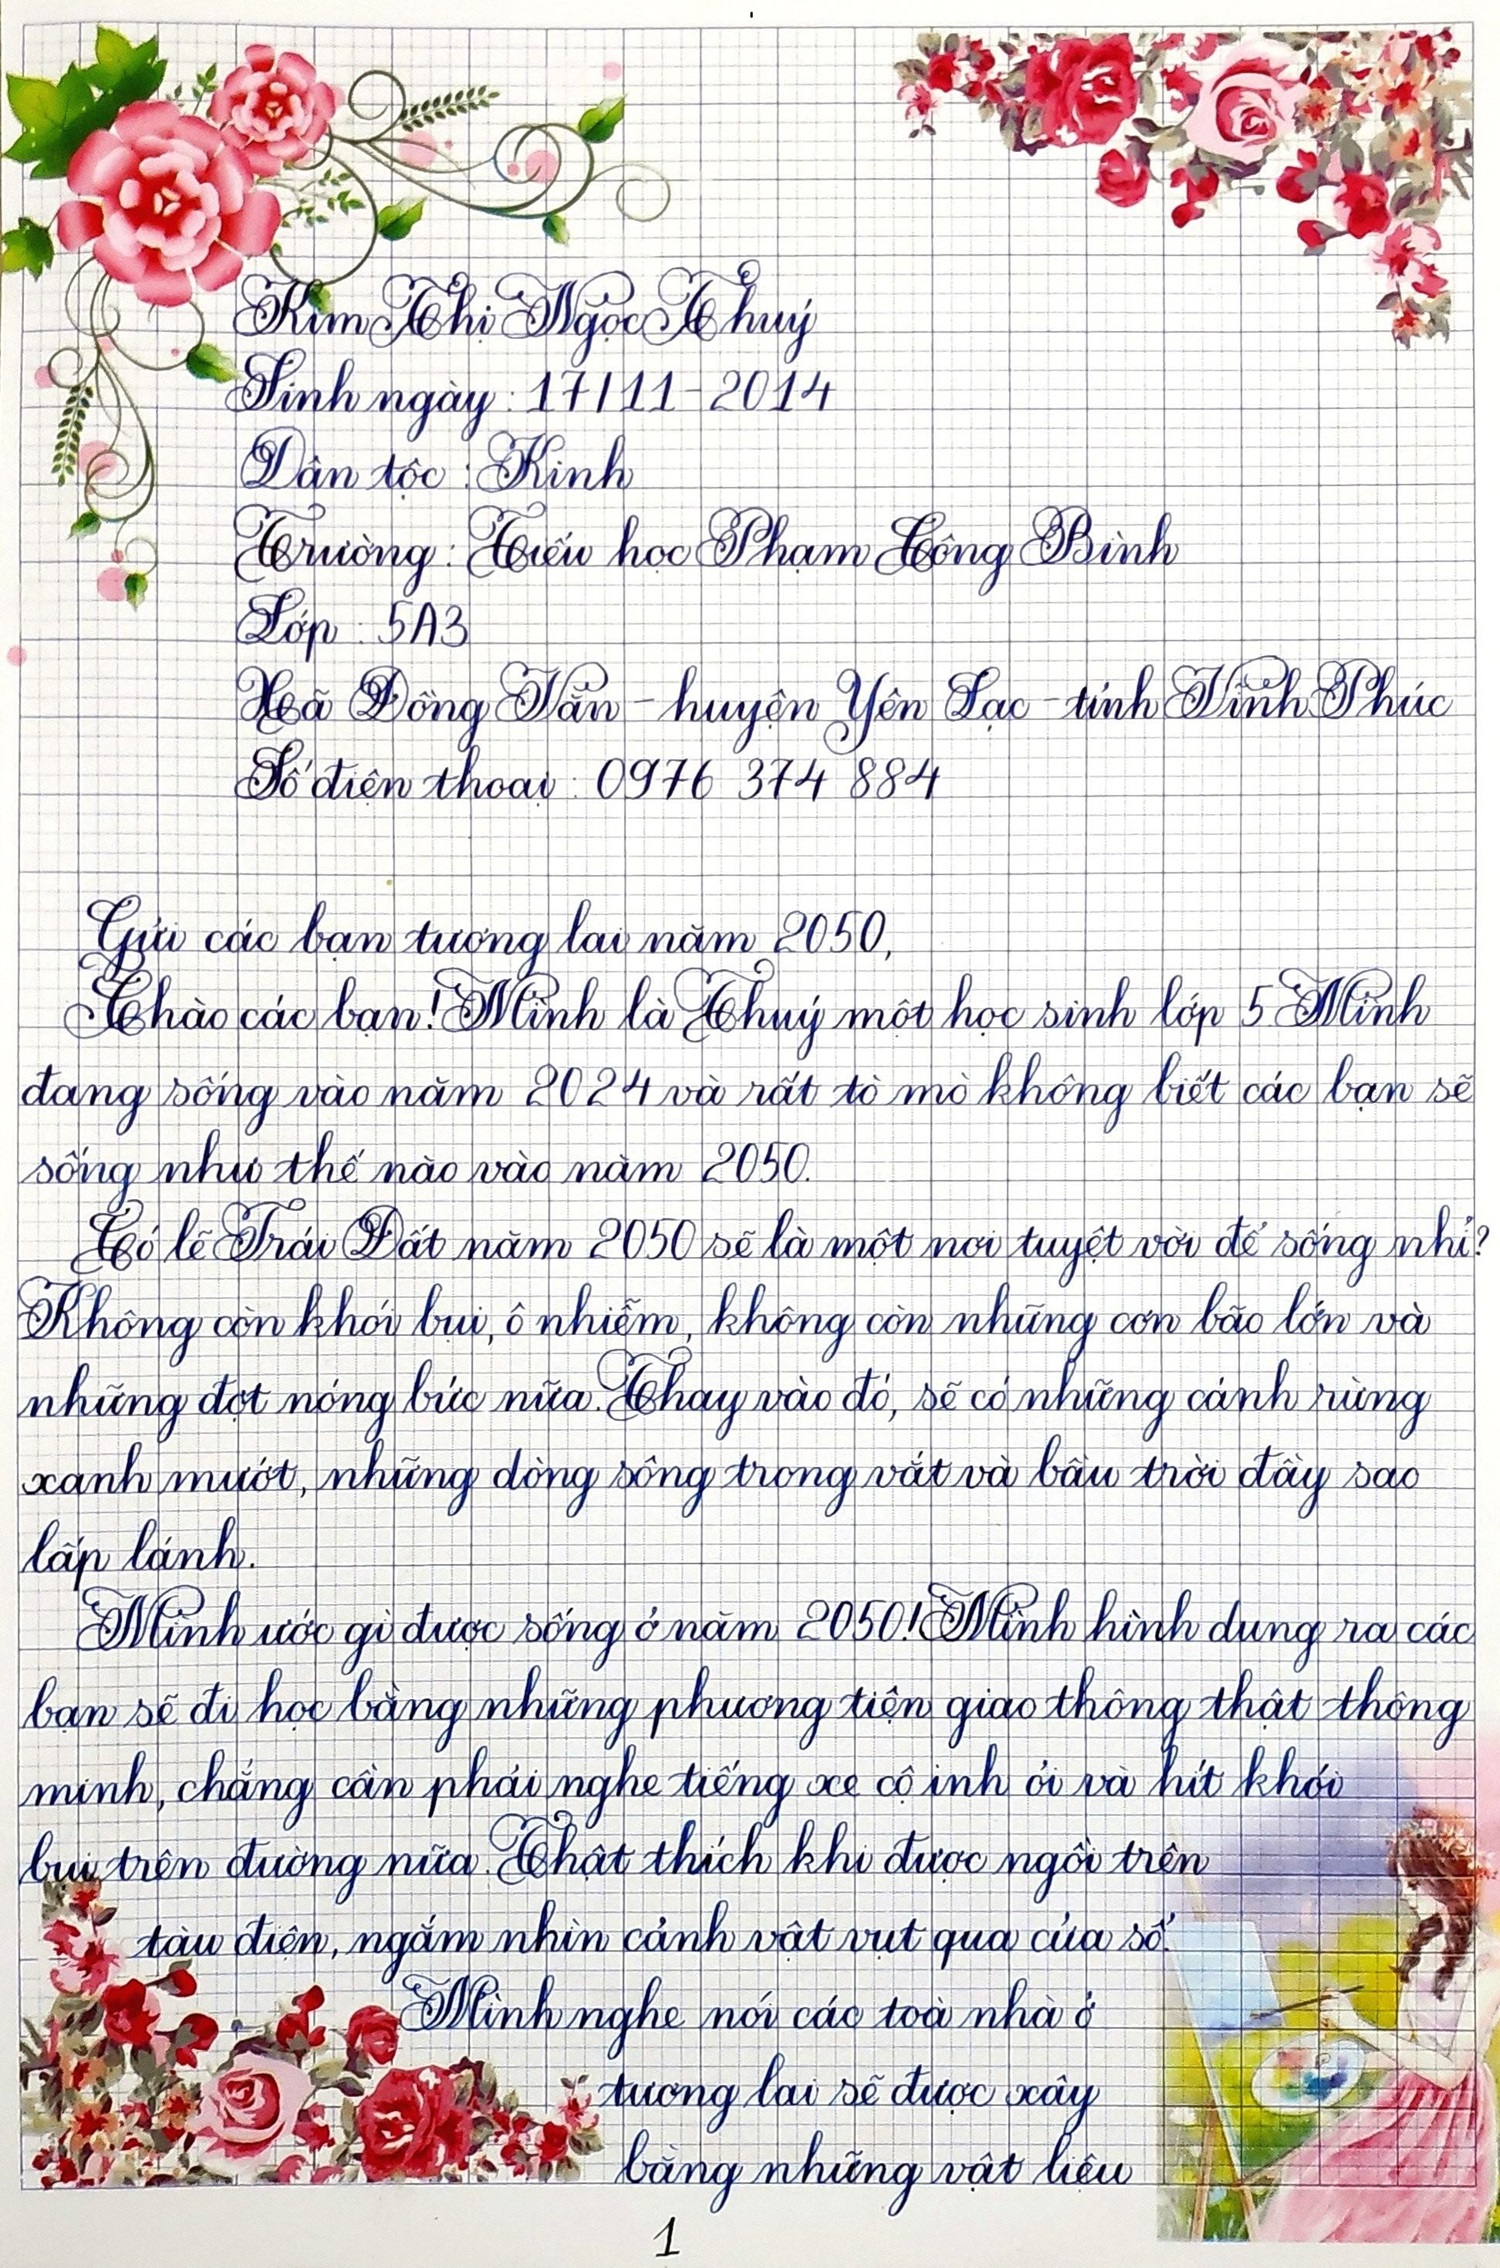 Kim Thị Ngọc Thuý
Sinh ngày : 17/11-2014
Dân tộc : Kinh
Trường : Tiểu học Phạm Công Bình
Lớp : 5A3
Xã Đồng Văn - huyện Yên Lạc - tỉnh Vĩnh Phúc
Số điện thoại : 0976 374 884
Gửi các bạn tương lai năm 2050,
Chào các bạn! Mình là Thuý một học sinh lớp 5. Mình
đang sống vào năm 2024 và rất tò mò không biết các bạn sẽ
sống như thế nào vào năm 2050.
Có lẽ Trái Đất năm 2050 sẽ là một nơi tuyệt vời để sống nhỉ?
Không còn khói bụi, ô nhiễm, không còn những cơn bão lớn và
những đợt nóng bức nữa. Thay vào đó, sẽ có những cánh rừng
xanh mướt, những dòng sông trong vắt và bầu trời đầy sao
lấp lánh.
Mình ước gì được sống ở năm 2050! Mình hình dung ra các
bạn sẽ đi học bằng những phương tiện giao thông thật thông
minh, chẳng cần phải nghe tiếng xe cộ inh ỏi và hít khói
bụi trên đường nữa. Thật thích khi được ngồi trên
tàu điện, ngắm nhìn cảnh vật vụt qua cửa sổ.
Mình nghe nói các toà nhà ở
tương lai sẽ được xây
bằng những vật liệu
1